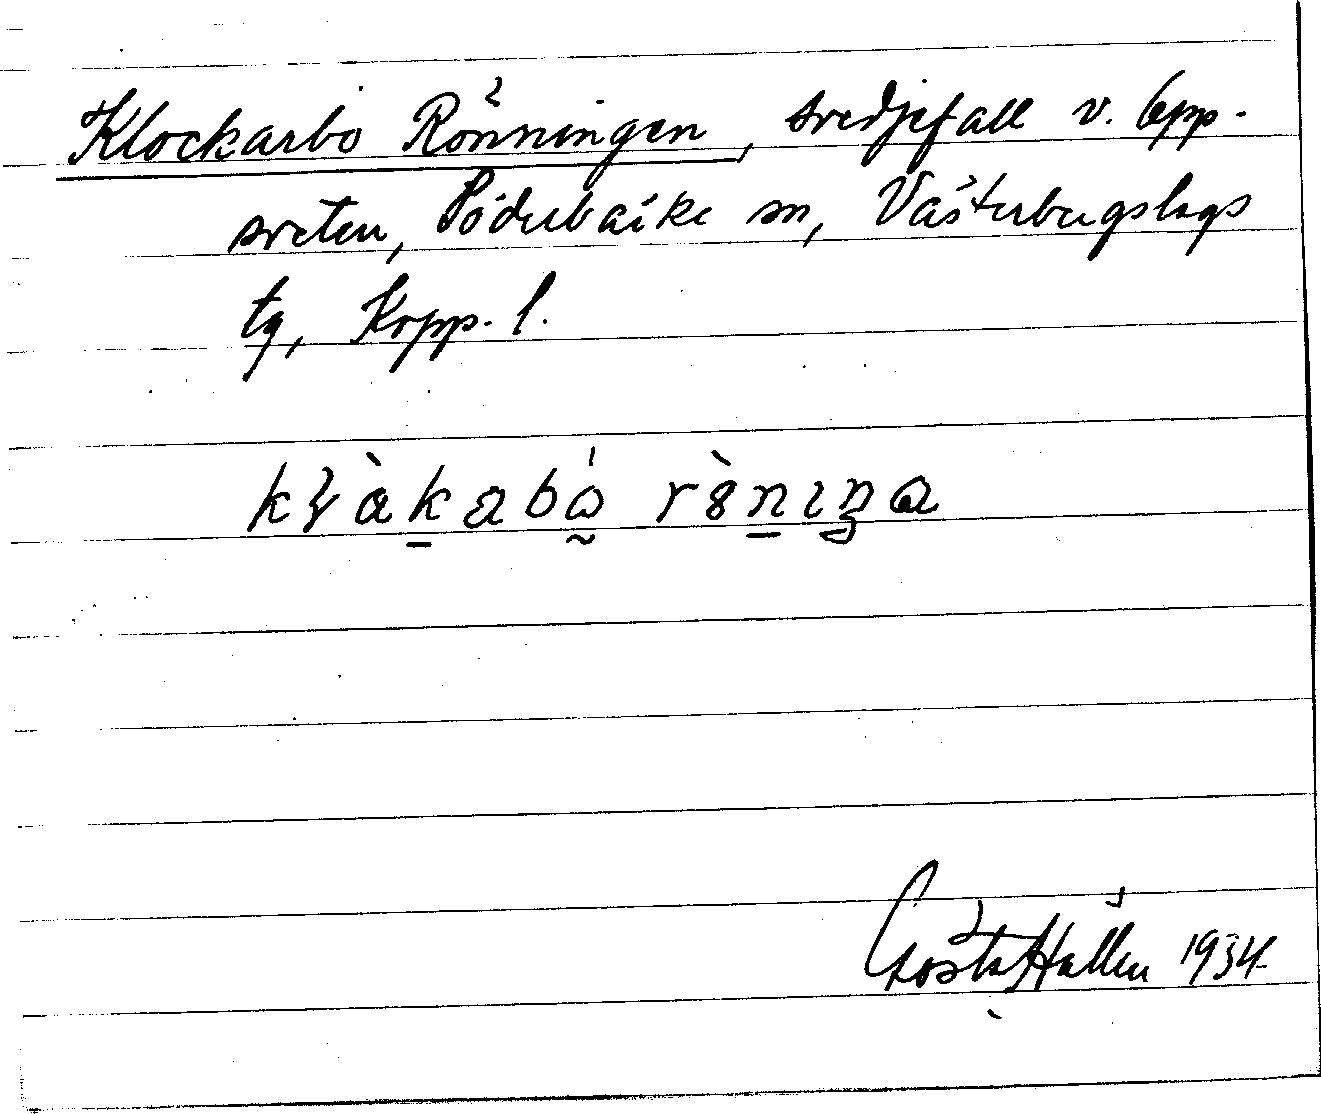 Klockarbo Rönningen, svedjefall v. Opp-
sveten, Söderbärke sn, Västerbergslags
tg, Kopp. l.
Gösta Hallén 1934